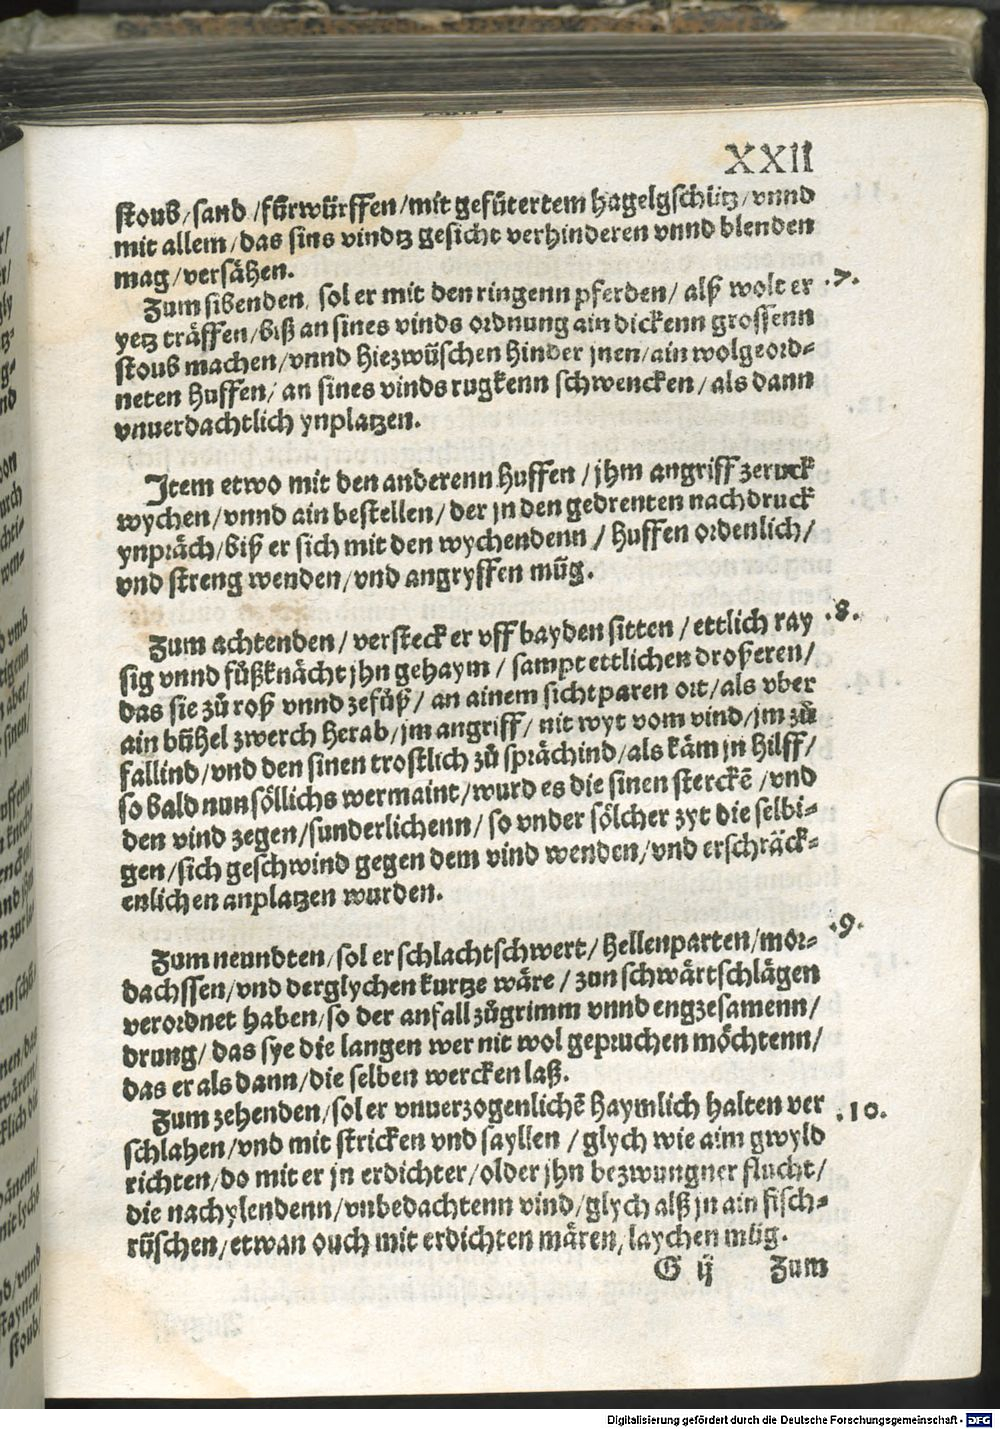 XXII
stoub/sand/fürwürffen/mit gefütertem hagelgschütz/vnnd
mit allem/das sins vindtz gesicht verhinderen vnnd blenden
mag/versähen.
Zum sibenden, sol er mit den ringenn pferden/alß wolt er .7.
yetz träffen/biß an sines vinds ordnung ain dickenn grossenn
stoub machen/vnnd hiezwüschen hinder jnen/ain wolgeord-
neten huffen/an sines vinds rugkenn schwencken/als dann
vnuerdachtlich ynplatzen.
Item etwo mit den anderenn huffen/jhm angriff zeruck
wychen/vnnd ain bestellen/der jn den gedrenten nachdruck
ynpräch/biß er sich mit den wychendenn/huffen ordenlich/
vnd streng wenden/vnd angryffen müg.
Zum achtenden/versteck er vff bayden sitten/ettlich ray .8.
sig vnnd füßknächt jhn gehaym/sampt ettlichen droßeren/
das sie zů roß vnnd zefůß/an ainem sichtparen ort/als vber
ain bühel zwerch herab/jm angriff/nit wyt vom vind/jm zů
fallind/vnd den sinen trostlich zů sprächind/als käm jn hilff/
so bald nun söllichs wermaint/wurd es die sinen sterckē/vnd
den vind zegen/sunderlichenn/so vnder sölcher zyt die selbi-
gen/sich geschwind gegen dem vind wenden/vnd erschräck-
enlichen anplatzen wurden.
Zum neundten/sol er schlachtschwert/hellenparten/mor- .9.
dachssen/vnd derglychen kurtze wäre/zun schwärtschlägen
verordnet haben/so der anfall zůgrimm vnnd engzesamenn/
drung/das sye die langen wer nit wol gepruchen möchtenn/
das er als dann/die selben wercken laß.
Zum zehenden/sol er vnuerzogenlichē haymlich halten ver .10.
schlahen/vnd mit stricken vnd sayllen/glych wie aim gwyld
richten/do mit er jn erdichter/older jhn bezwungner flucht/
die nachylendenn/vnbedachtenn vind/glych alß jn ain fisch-
rüschen/etwan ouch mit erdichten mären, laychen müg.
G ij Zum
Digitalisierung gefördert durch die Deutsche Forschungsgemeinschaft - DFG